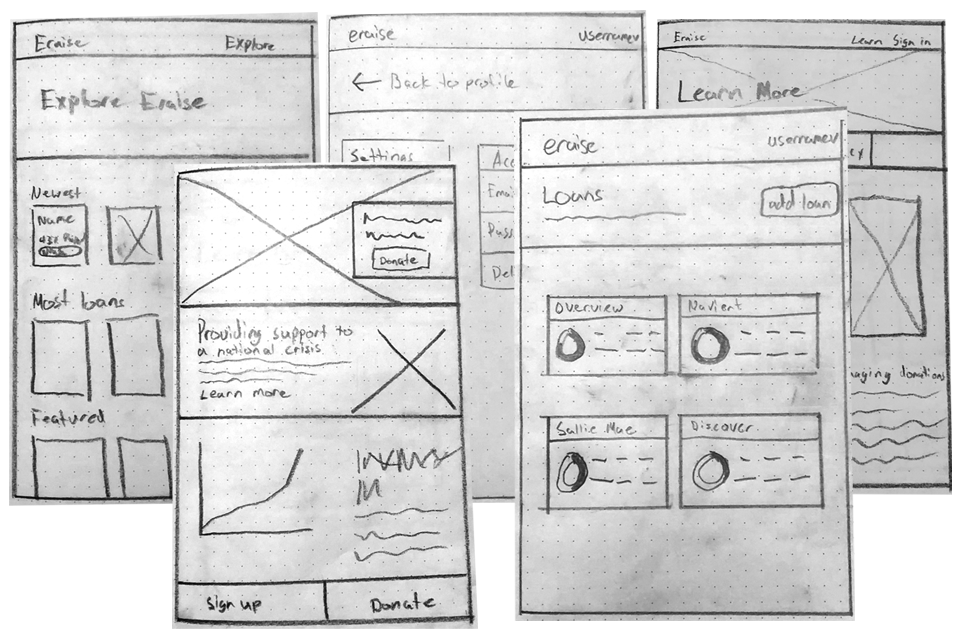 Eraise Explore
Explore Eraise
Newest
Name
Most loans
Featured
eraise
← Back to profile
Settings
Acc
Emai
Pass
Del
Eraise Learn Sign in
Learn More
cy
naging donations
Donate
Providing support to
a national crisis
Learn more
Sign up Donate
eraise username
Loans add loan
Overview Navient
Sallie Mae Discover